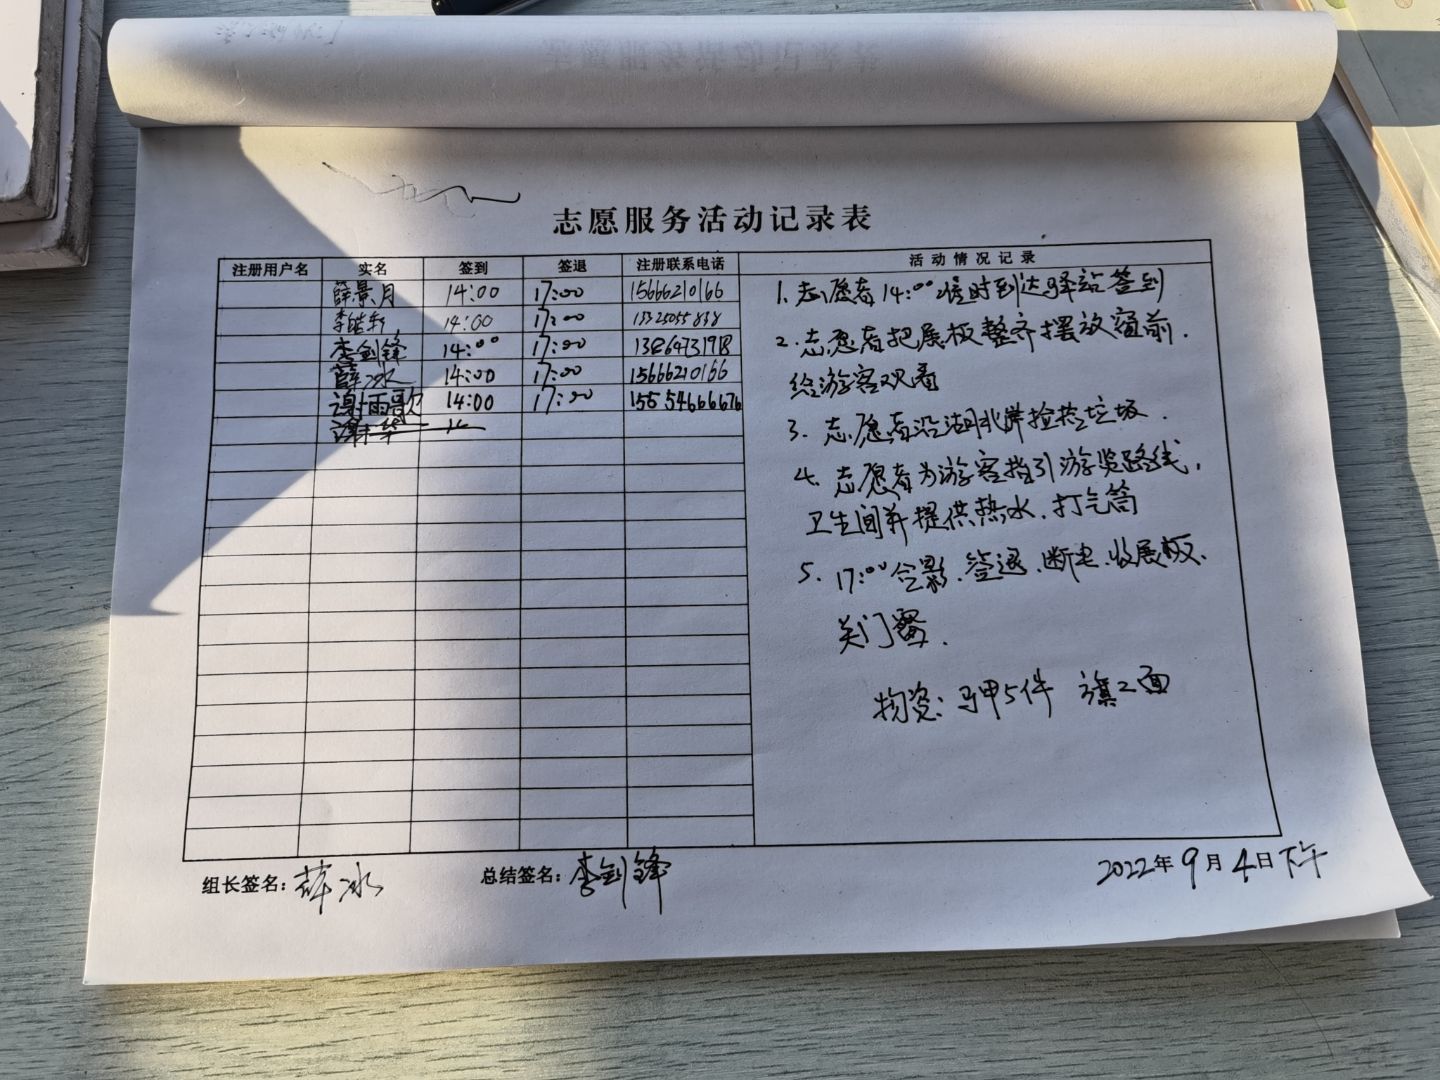 志愿服务活动记录表
注册用户名 实名 签到 签退 注册联系电话 活动情况记录
薛景月 14:00 17:00 15666210166
李皓轩 14:00 17:00 13325055838
李剑锋 14:00 17:00 13864731918
薛冰 14:00 17:00 15666210166
谢雨歌 14:00 17:00 15554666676
1.志愿者14:00准时到达驿站签到
2.志愿者把展板整齐摆放窗前.
给游客观看
3.志愿者沿湖北岸捡拾垃圾.
4.志愿者为游客指引游览路线,
卫生间并提供热水.打气筒
5.17:00合影.签退.断电.收展板.
关门窗.
物资:马甲5件 旗2面
组长签名:薛冰 总结签名:李剑锋 2022年9月4日下午